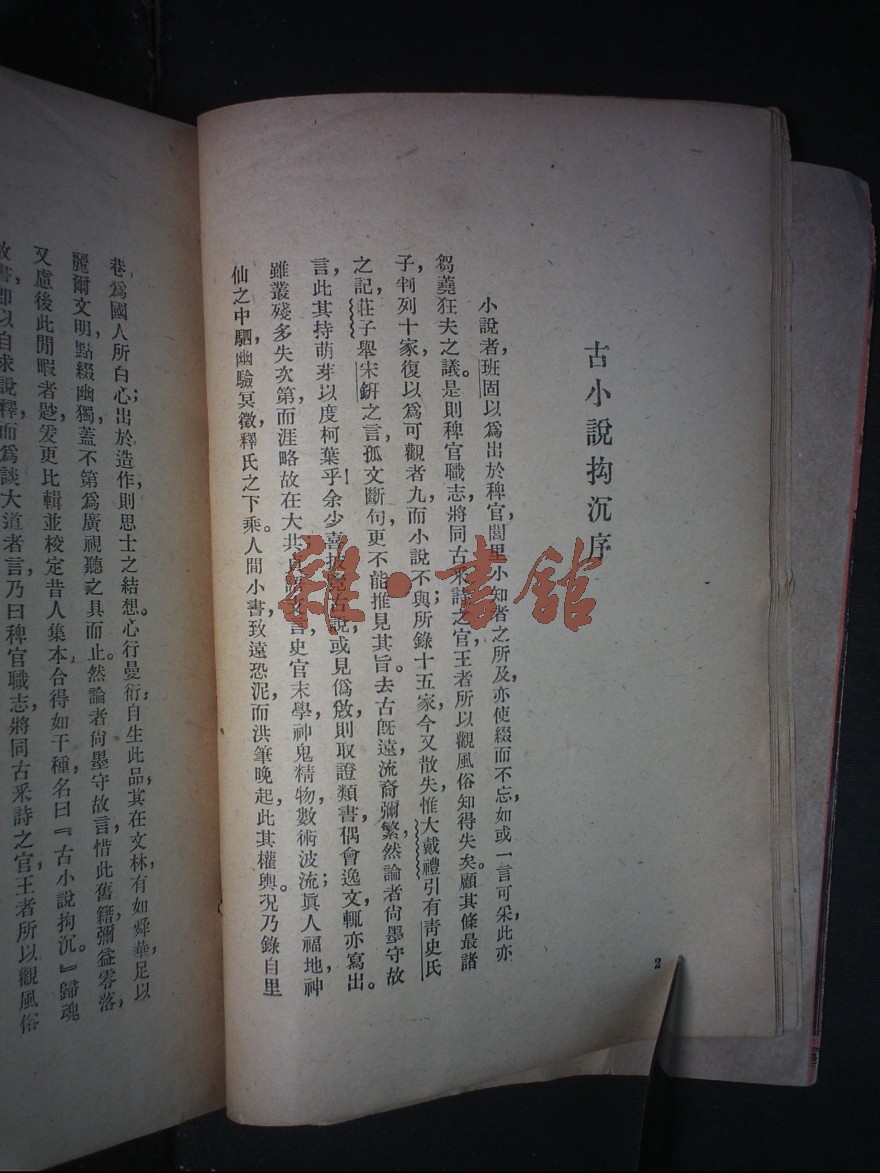 古小說拘沉序
小說者，班固以爲出於稗官閭里小知者之所及，亦使綴而不忘，如或一言可采，此亦
芻蕘狂夫之議。是則稗官職志，將同古采詩之官，王者所以觀風俗知得失矣。顧其條最諸
子，判列十家，復以爲可觀者九，而小說不與；所錄十五家，今又散失。惟大戴禮引有靑史氏
之記，莊子舉宋鈃之言，孤文斷句，更不能推見其旨。去古旣遠，流裔彌繁，然論者尙墨守故
言，此其持萌芽以度柯葉乎！余少喜披覽古說，或見僞敓，則取證類書，偶會逸文，輒亦寫出。
雖叢殘多失次第，而涯略故在。大共 語 言，史官末學，神鬼精物，數術波流；眞人福地，神
仙之中駟，幽驗冥徵，釋氏之下乘。人間小書，致遠恐泥，而洪筆晚起，此其權輿。况乃錄自里
2
巷，爲國人所白心；出於造作，則思士之結想。心行曼衍，自生此品，其在文林，有如舜華，足以
麗爾文明，點綴幽獨，蓋不第爲廣視聽之具而止。然論者尙墨守故言，惜此舊籍，彌益零落，
又慮後此閒暇者尟，爰更比輯，並校定昔人集本，合得如干種，名曰『古小說拘沉。』歸魂
故書，卽以自求說釋，而爲談大道者言，乃曰稗官職志，將同古采詩之官，王者所以觀風俗
雜·書館